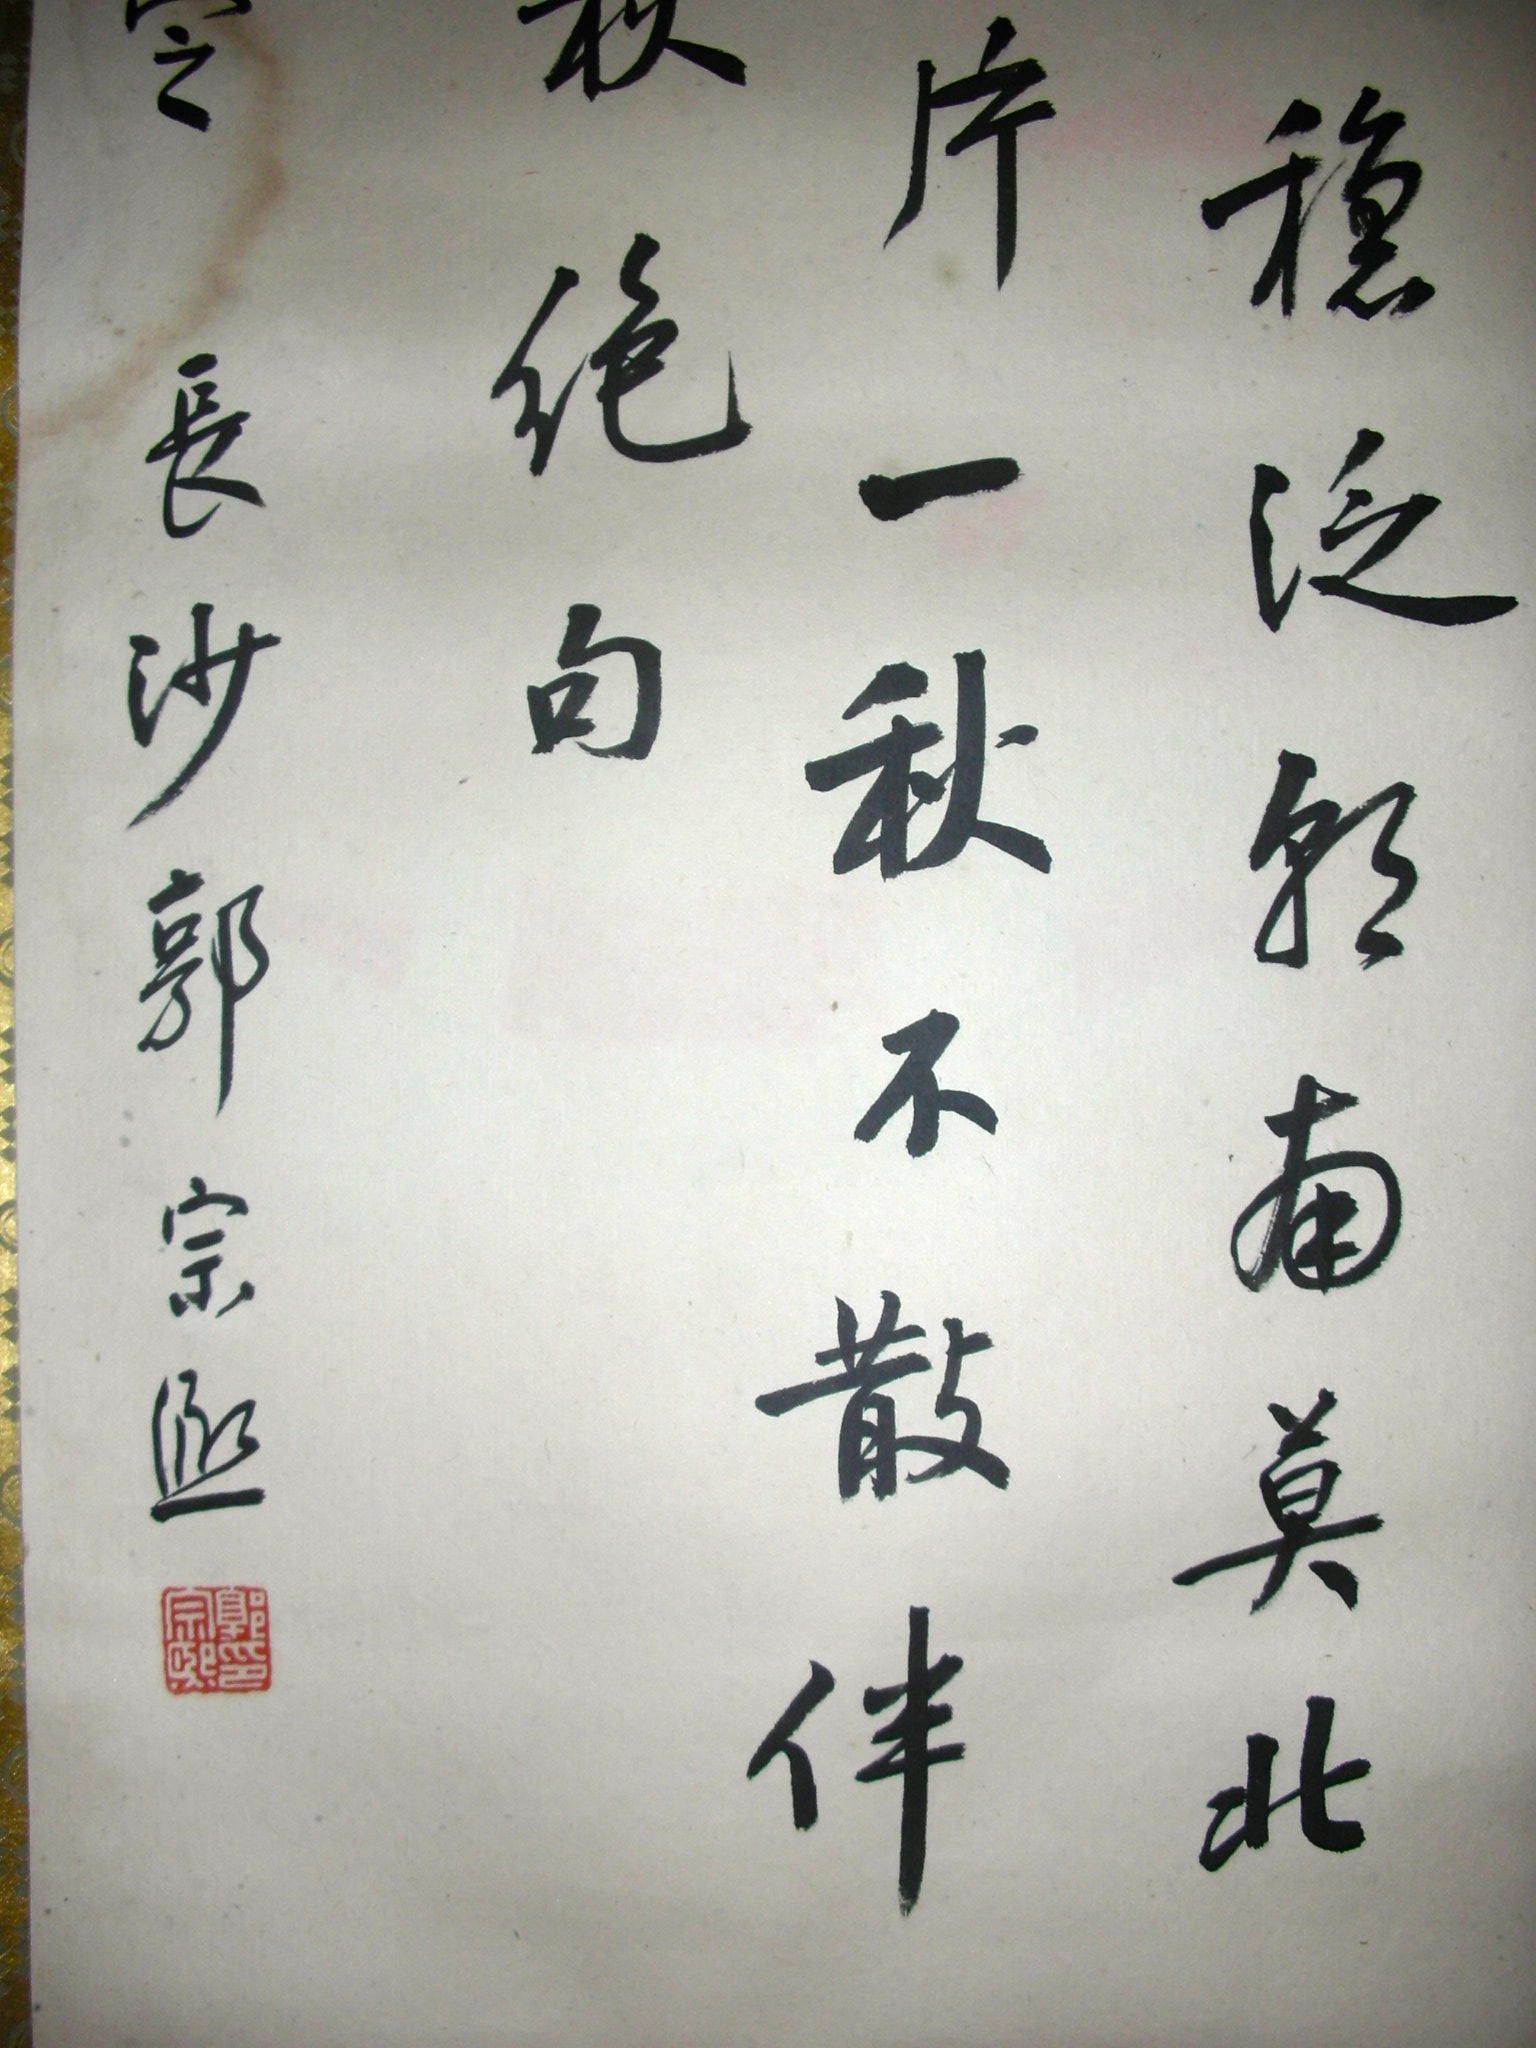 穩泛郭南莫北
片一秋不散伴
秋絕句
之
長沙郭宗熙
郭宗熙印